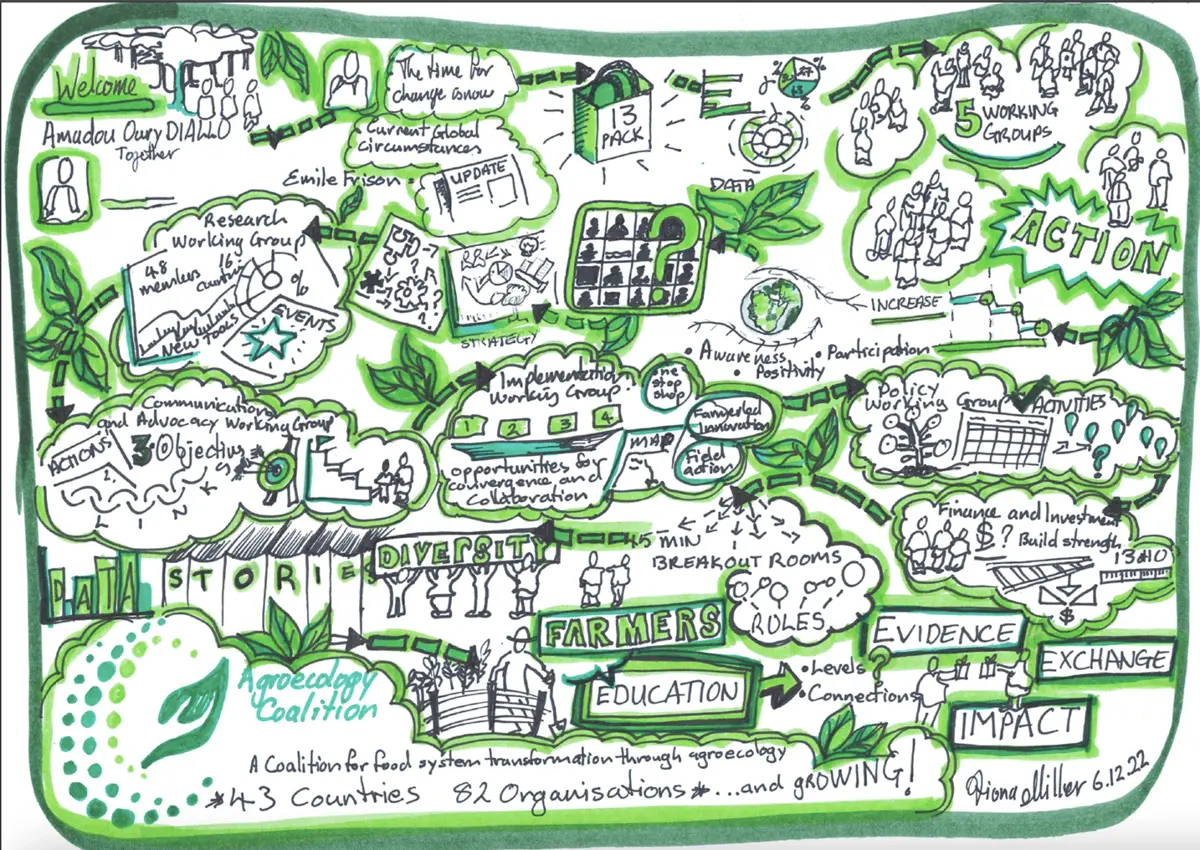 Welcome
Amadou Oury DIALLO
Together
The time for
change is now
Current Global
Circumstances
Emile Frison
UPDATE
13
PACK
DATA
5 WORKING
GROUPS
ACTION
Research
Working Group
48
members
16
countries
%
NEW TOOLS
EVENTS
STRATEGY
?
INCREASE
• Awareness
• Positivity
• Participation
Communications
and Advocacy Working Group
ACTIONS
3 Objectives
Implementation
Working Group
1 2 3 4
one
stop
shop
Farmerled
Innovation
MAP
Field
action
opportunities for
convergence and
Collaboration
Policy
Working Group
ACTIVITIES
?
Finance and Investment
$ ? Build strength
13 #10
$
45 MIN
BREAKOUT ROOMS
RULES
DATA
STORIES
DIVERSITY
FARMERS
EDUCATION
• Levels ?
• Connections
EVIDENCE
EXCHANGE
IMPACT
Agroecology
Coalition
A Coalition for food system transformation through agroecology
*43 Countries 82 Organisations *...and GROWING!
Fiona Miller 6.12.22